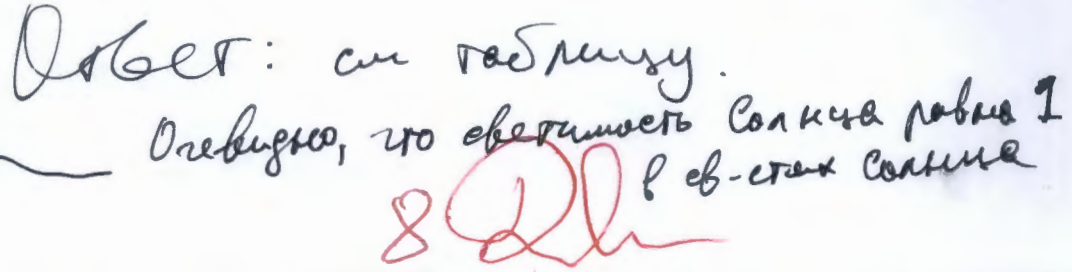 Ответ: см таблицу.
Очевидно, что светимость Солнца равна 1
в св-стях Солнца
8